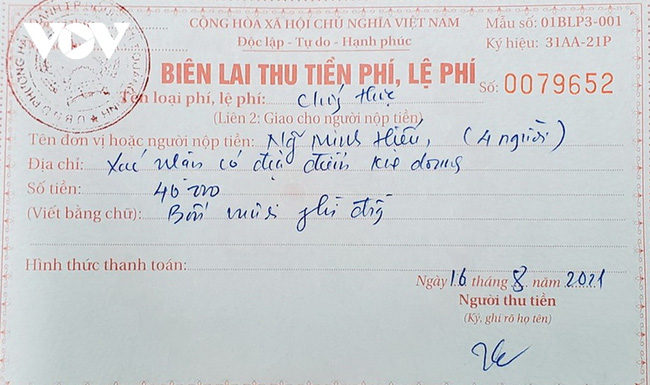 VOV
CỘNG HÒA XÃ HỘI CHỦ NGHĨA VIỆT NAM
Độc lập - Tự do - Hạnh phúc
Mẫu số: 01BLP3-001
Ký hiệu: 31AA-21P
BIÊN LAI THU TIỀN PHÍ, LỆ PHÍ
Số: 0079652
Tên loại phí, lệ phí: Chứng thực
(Liên 2: Giao cho người nộp tiền)
Tên đơn vị hoặc người nộp tiền: Ng Minh Hiếu, (4 người)
Địa chỉ: Xác nhận có địa điểm
Số tiền: 40 000
(Viết bằng chữ): Bốn mươi ghìn đồng
Hình thức thanh toán:
Ngày 16 tháng 8 năm 2021
Người thu tiền
(Ký, ghi rõ họ tên)